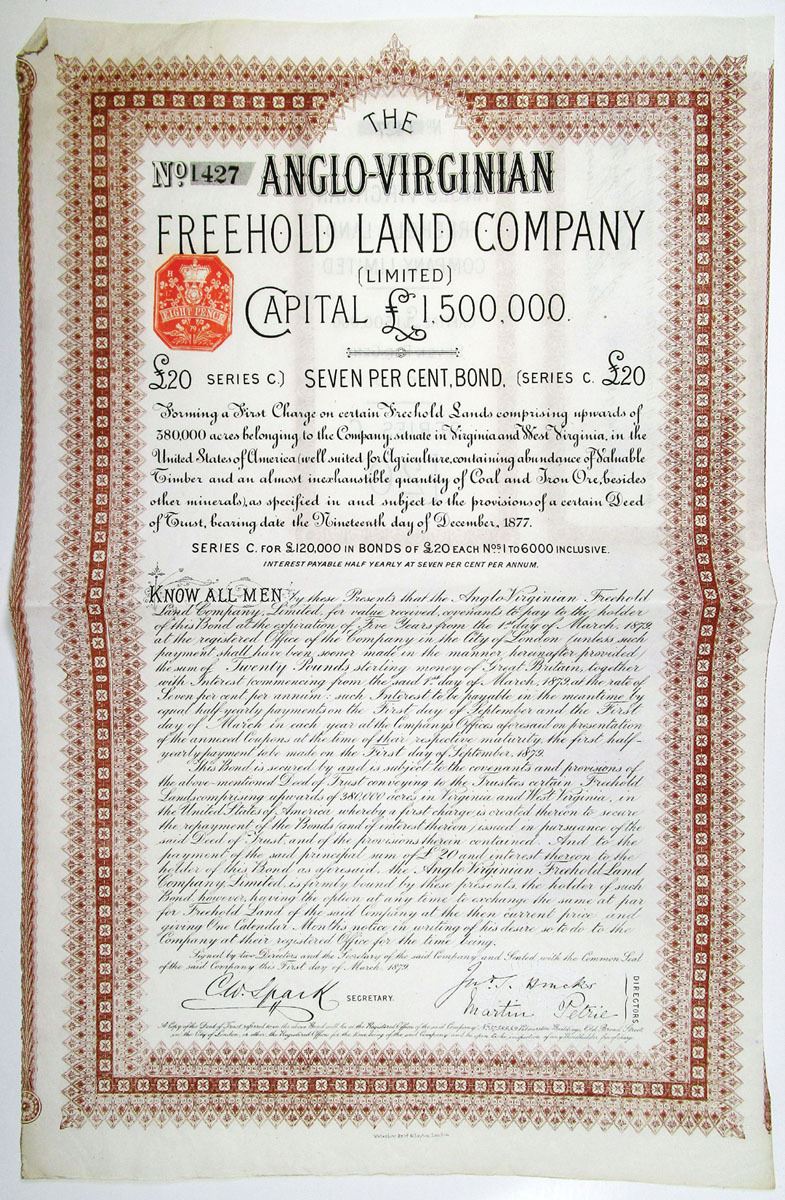 THE
No 1427 ANGLO-VIRGINIAN
FREEHOLD LAND COMPANY
(LIMITED)
CAPITAL £1,500,000.
EIGHT PENCE
£20 SERIES C.) SEVEN PER CENT, BOND, (SERIES C. £20
Forming a First Charge on certain Freehold Lands comprising upwards of
380,000 acres belonging to the Company, situate in Virginia and West Virginia, in the
United States of America (well suited for Agriculture, containing abundance of Valuable
Timber and an almost inexhaustible quantity of Coal and Iron Ore, besides
other minerals), as specified in and subject to the provisions of a certain Deed
of Trust, bearing date the Nineteenth day of December, 1877.
SERIES C. FOR £120,000 IN BONDS OF £20 EACH Nos 1 TO 6000 INCLUSIVE.
INTEREST PAYABLE HALF YEARLY AT SEVEN PER CENT PER ANNUM.
KNOW ALL MEN By these Presents that the Anglo Virginian Freehold
Land Company, Limited, for value received, covenants to pay to the holder
of this Bond at the expiration of Five Years from the 1st day of March, 1879,
at the registered Office of the Company in the City of London (unless such
payment shall have been sooner made in the manner hereinafter provided)
the sum of Twenty Pounds sterling money of Great Britain, together
with Interest (commencing from the said 1st day of March, 1879, at the rate of
Seven per cent per annum: such Interest to be payable in the meantime by
equal half yearly payments on the First day of September and the First
day of March in each year at the Company's Offices aforesaid on presentation
of the annexed Coupons at the time of their respective maturity, the first half-
yearly payment to be made on the First day of September, 1879.
This Bond is secured by and is subject to the covenants and provisions of
the above-mentioned Deed of Trust conveying to the Trustees certain Freehold
Lands comprising upwards of 380,000 acres in Virginia and West Virginia, in
the United States of America whereby a first charge is created thereon to secure
the repayment of the Bonds (and of interest thereon) issued in pursuance of the
said Deed of Trust, and of the provisions therein contained. And to the
payment of the said principal sum of £20 and interest thereon to the
holder of this Bond as aforesaid, the Anglo Virginian Freehold Land
Company, Limited, is firmly bound by these presents, the holder of such
Bond, however, having the option at any time to exchange the same at par
for Freehold Land of the said Company at the then current price and
giving One Calendar Months notice in writing of his desire so to do to the
Company at their registered Office for the time being.
Signed by two Directors and the Secretary of the said Company and Sealed with the Common Seal
of the said Company this First day of March, 1879.
C.W. Spark SECRETARY.
Martin Petrie
DIRECTORS.
A Copy of the Deed of Trust referred to in the above Bond will lie at the Registered Offices of the said Company, Palmerston Buildings, Old Broad Street
in the City of London, or other the Registered Office for the time being of the said Company and be open to the inspection of any Bondholder free of charge.